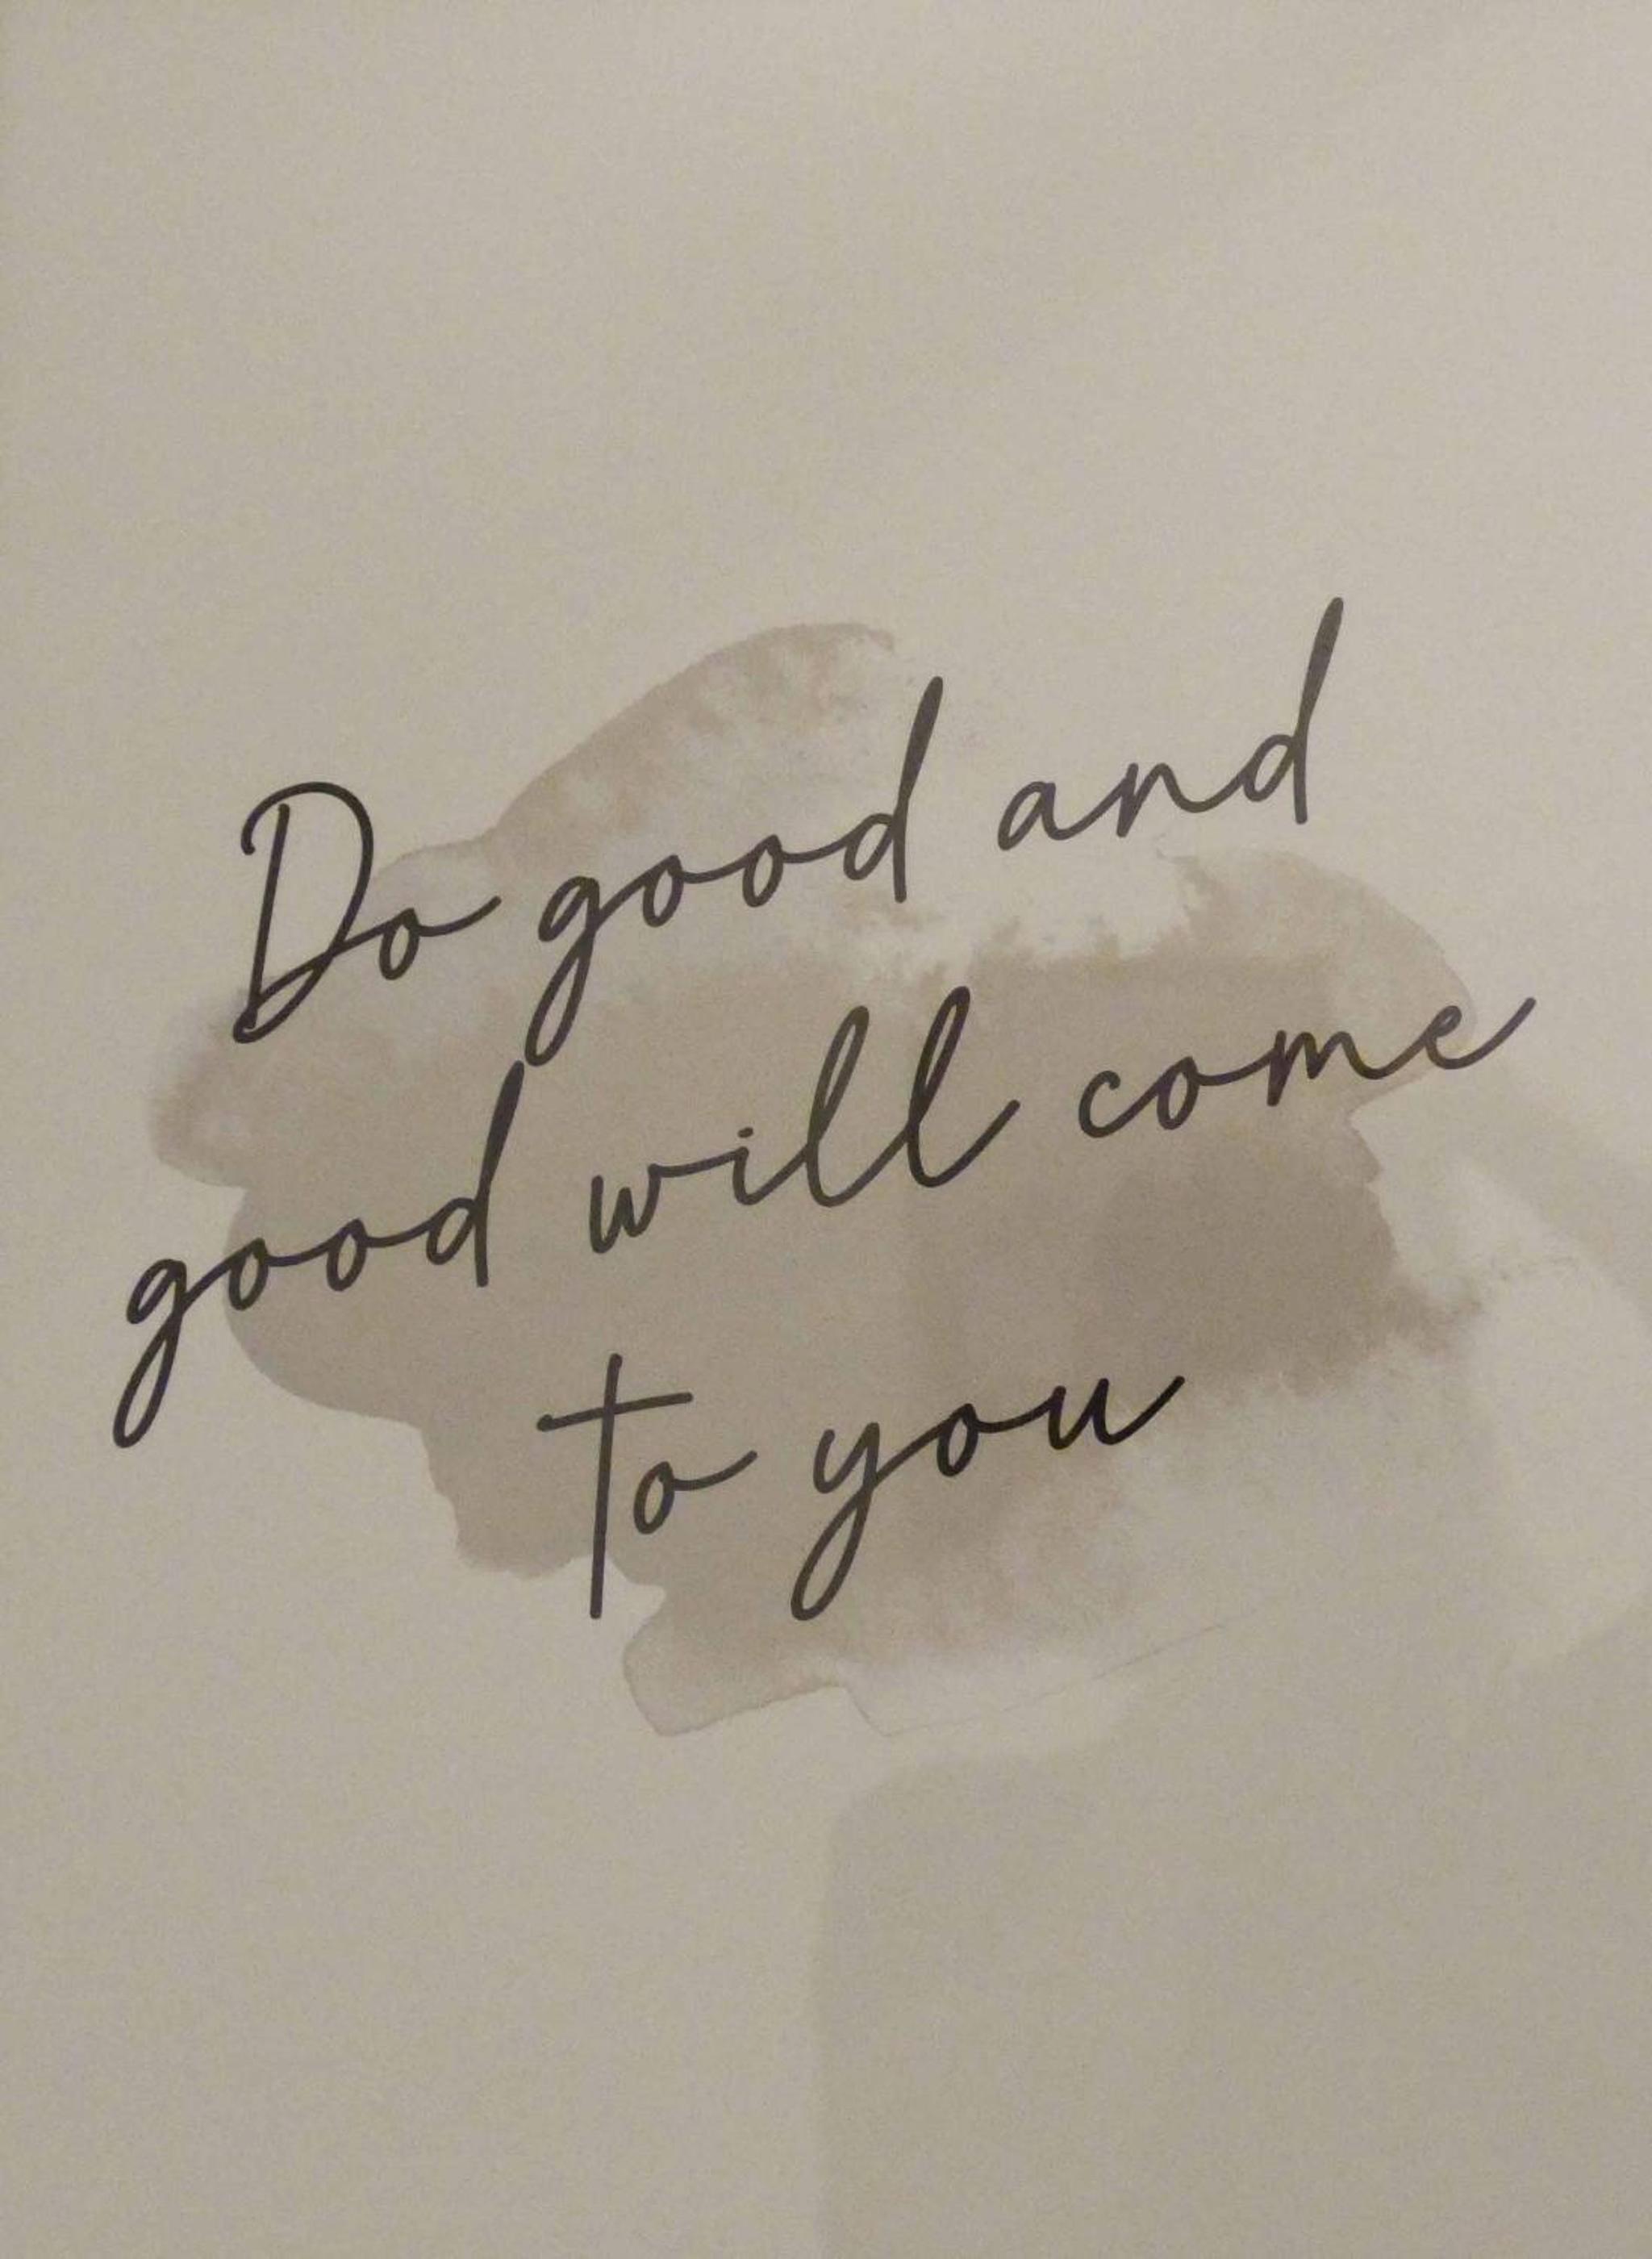 Do good and
good will come
to you